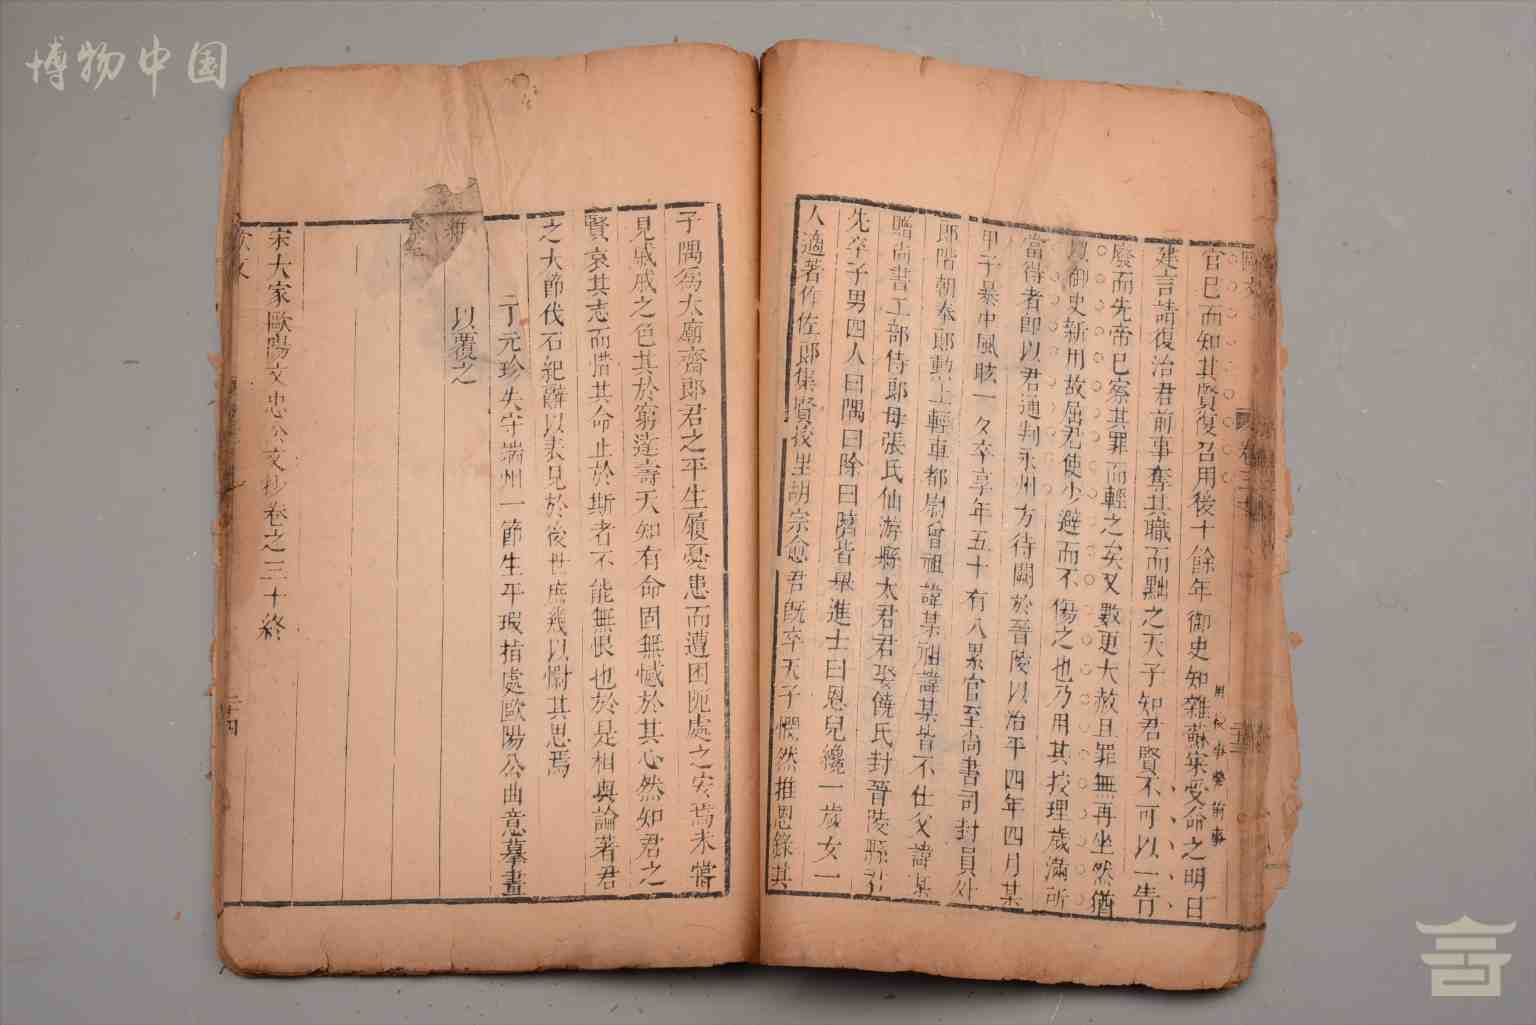 博物中国
官已而知其賢復召用後十餘年御史知雜蘇寀受命之明日
建言請復治君前事奪其職而黜之天子知君賢不可以一眚
廢而先帝已察其罪而輕之矣又數更大赦且罪無再坐然猶
以御史新用故屈君使少避而不傷之也乃用其校理歲滿所
當得者即以君通判永州方待闕於晉陵以治平四年四月某
甲子暴中風眩一夕卒享年五十有八累官至尚書司封員外
郎階朝奉郎勳上輕車都尉曾祖諱某祖諱某皆不仕父諱某
贈尚書工部侍郎母張氏仙游縣太君君娶饒氏封晉陵縣君
先卒子男四人曰隅曰除曰隮皆舉進士曰恩兒纔一歲女一
人適著作佐郎集賢校理胡宗愈君既卒天子憫然推恩錄其
子隅爲太廟齋郎君之平生履憂患而遭困阨處之安焉未嘗
見戚戚之色其於窮達壽夭知有命固無憾於其心然知君之
賢哀其志而惜其命止於斯者不能無恨也於是相與論著君
之大節伐石紀辭以表見於後世庶幾以慰其思焉
丁元珍失守端州一節生平瑕指處歐陽公曲意摹畫
以覆之
宋大家歐陽文忠公文抄卷之三十終
歐文
二十四